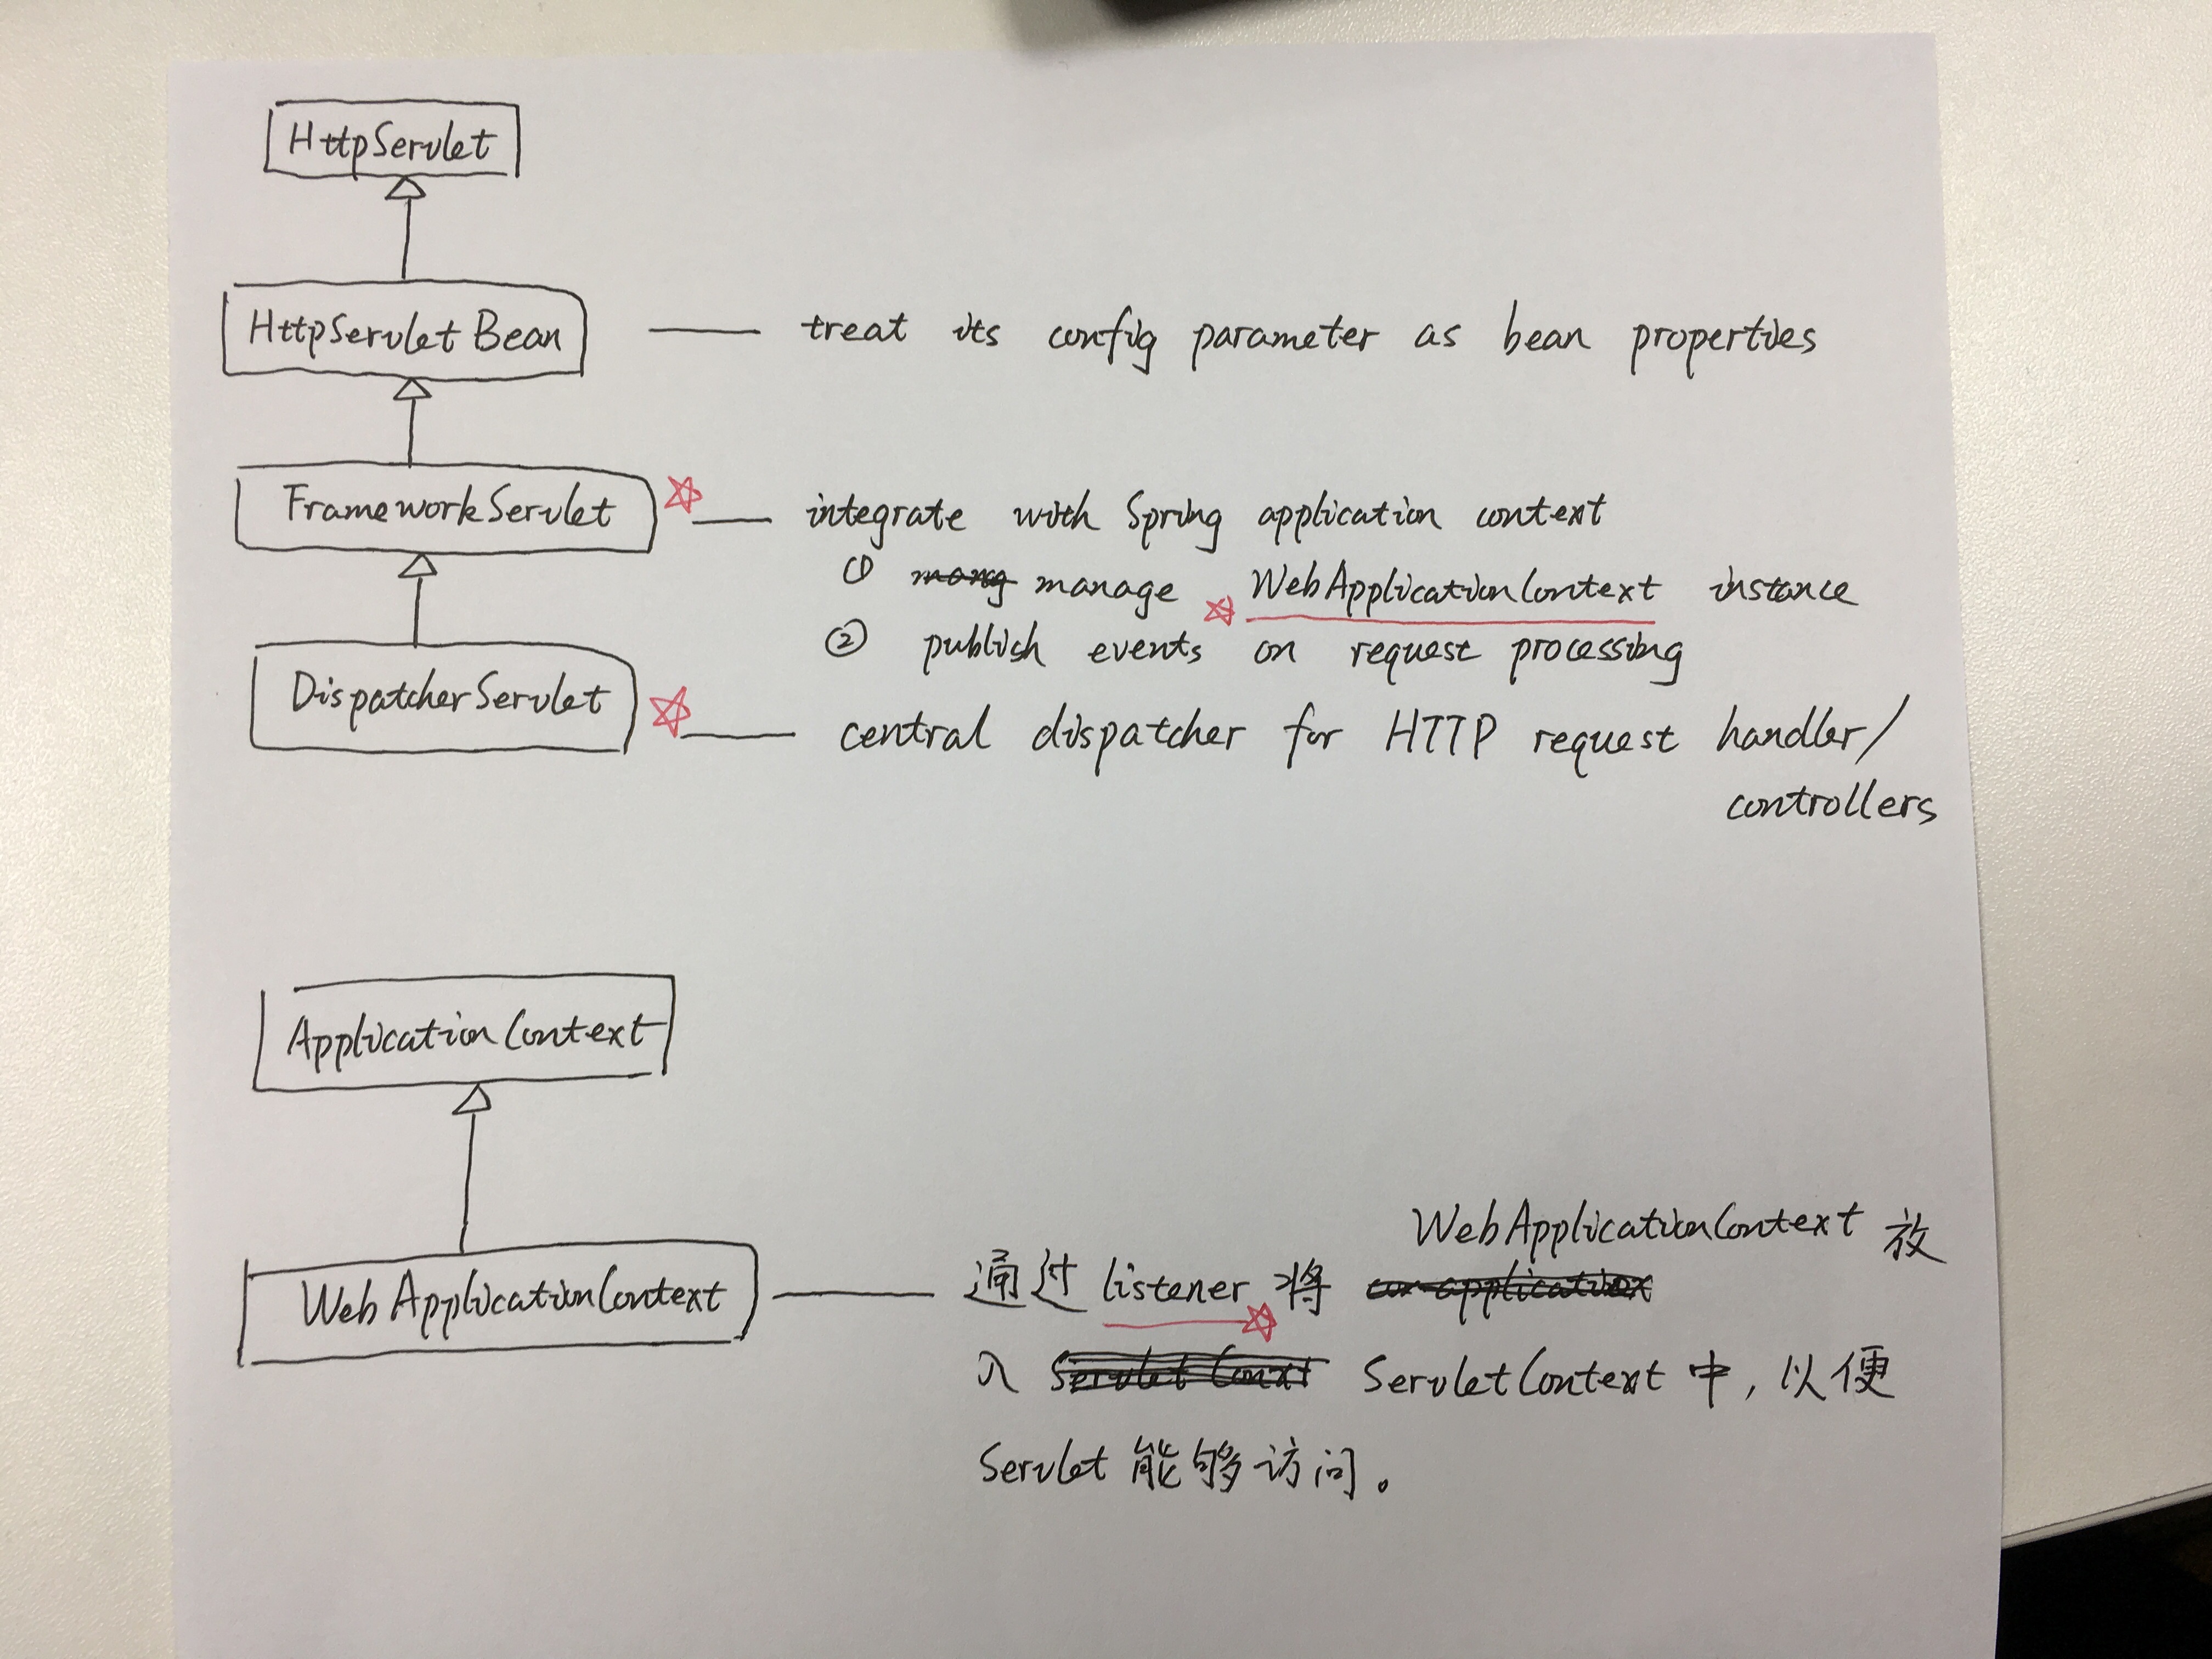 HttpServlet
HttpServletBean — treat its config parameter as bean properties
FrameworkServlet — integrate with Spring application context
① manage WebApplicationContext instance
② publish events on request processing
DispatcherServlet — central dispatcher for HTTP request handler/
controllers
ApplicationContext
WebApplicationContext 放
WebApplicationContext — 通过 listener 将
入 ServletContext 中，以便
Servlet 能够访问。